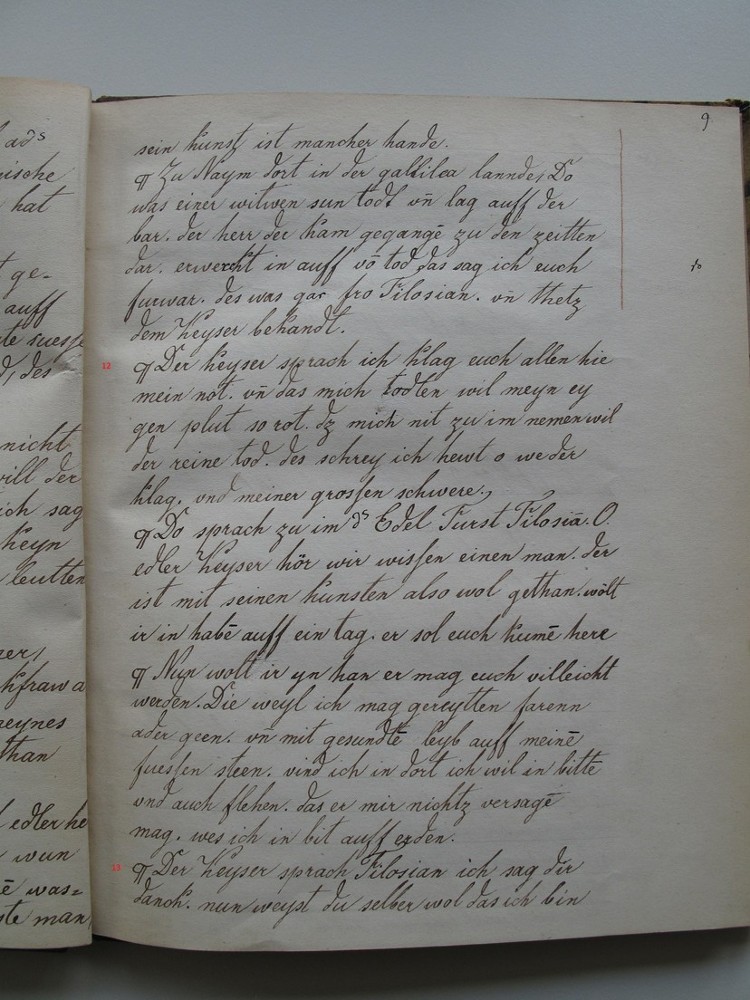 9
sein kunst ist mancher hande.
¶ Zu Naym dort in der gallilea lannde, Do
was einer witwen sun todt vn̄ lag auff der
bar. der herr der kam gegangē zu den zeitten
dar. erweckt in auff vō tod das sag ich euch
10
furwar. des was gar fro Tilosian. vn̄ thetz
dem Keyser bekandt.
12
¶ Der keyser sprach ich klag euch allen hie
mein not. vn̄ das mich todten wil meyn ey
gen plut so rot. dz mich nit zu im nemen wil
der reine tod. des schrey ich hewt o we der
klag. vnd meiner grossen schwere.
¶ Do sprach zu im ds Edel Furst Tilosiā. O.
edler Keyser hör wir wissen einen man. der
ist mit seinen kunsten also wol gethan. wölt
ir in habē auff ein tag. er sol euch kumē here
¶ Nun wolt ir yn han er mag euch villeicht
werden. Die weyl ich mag gereytten farenn
ader geen. vn̄ mit gesundtē leyb auff meinē
fuessen steen. vind ich in dort ich wil in bittē
vnd auch flehen. das er mir nichtz versagē
mag. wes ich in bit auff erden.
13
¶ Der Keyser sprach Tilosian ich sag dir
danck. nun weyst du selber wol das ich bin
ads
nische
hat
t ge-
auff
des
nicht
will der
ich sag
keyn
leutten
kfraw a
meynes
than
edler he
wun
ē was=
ste man